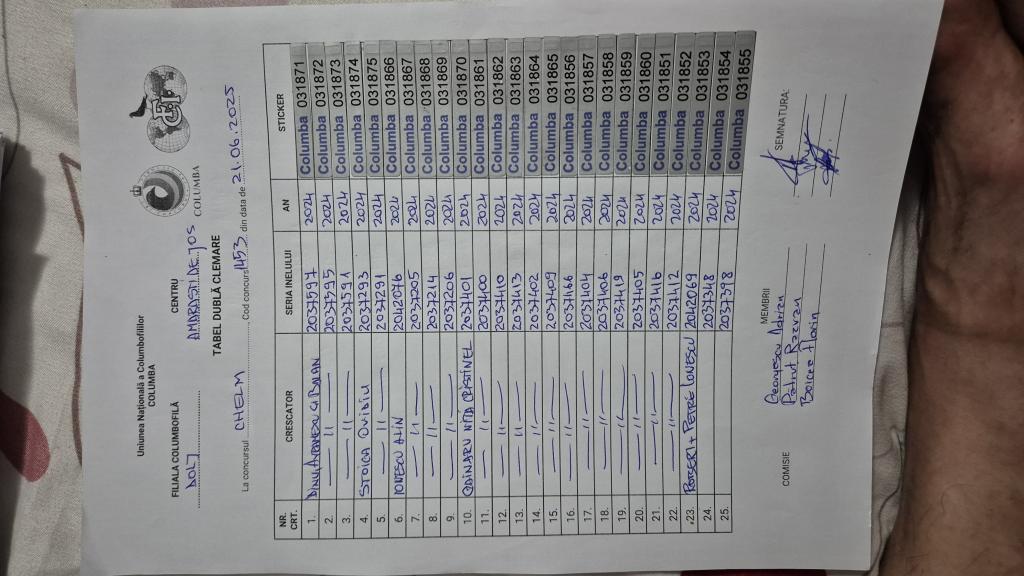 Uniunea Națională a Columbofililor
COLUMBA
COLUMBA
FILIALA COLUMBOFILĂ CENTRU
DOLJ AMARASTI DE JOS
TABEL DUBLĂ CLEMARE
La concursul CHELM, Cod concurs 1453 din data de 21.06.2025
NR. CRT. CRESCATOR SERIA INELULUI AN STICKER
1. DINU AVRAMESCU G. BALAN 2033597 2024 Columba 031871
2. — 11 — 2033595 2024 Columba 031872
3. — 11 — 2033591 2024 Columba 031873
4. STOICA OVIDIU 2037293 2024 Columba 031874
5. — 11 — 2037291 2024 Columba 031875
6. IONESCU ALIN 2042076 2024 Columba 031866
7. — 11 — 2037205 2024 Columba 031867
8. — 11 — 2037214 2024 Columba 031868
9. — 11 — 2037206 2024 Columba 031869
10. NIȚĂ CRISTINEL 2037401 2024 Columba 031870
11. — 11 — 2037400 2024 Columba 031861
12. — 11 — 2037410 2024 Columba 031862
13. — 11 — 2037413 2024 Columba 031863
14. — 11 — 2037402 2024 Columba 031864
15. — 11 — 2037409 2024 Columba 031865
16. — 11 — 2037466 2024 Columba 031856
17. — 11 — 2037404 2024 Columba 031857
18. — 11 — 2037406 2024 Columba 031858
19. — 11 — 2037419 2024 Columba 031859
20. — 11 — 2037405 2024 Columba 031860
21. — 11 — 2037416 2024 Columba 031851
22. — 11 — 2037412 2024 Columba 031852
23. + PETRE IONESCU 2042069 2024 Columba 031853
24. 2037348 2024 Columba 031854
25. 2037398 2024 Columba 031855
COMISIE MEMBRII SEMNATURA:
Georgescu Adrian
Pătruț Răzvan
Boicea Florin